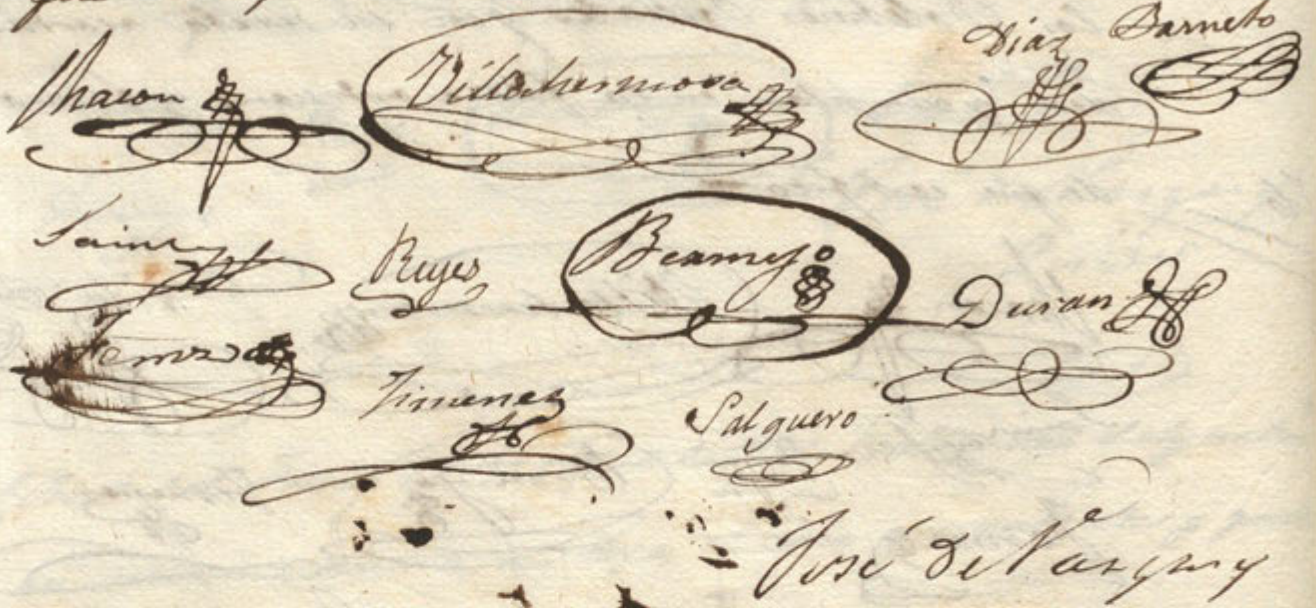 Chacon Villahermosa Diaz Barneto
Sainz Reyes Bermejo Duran
Ximenez Salguero
José de Vargas